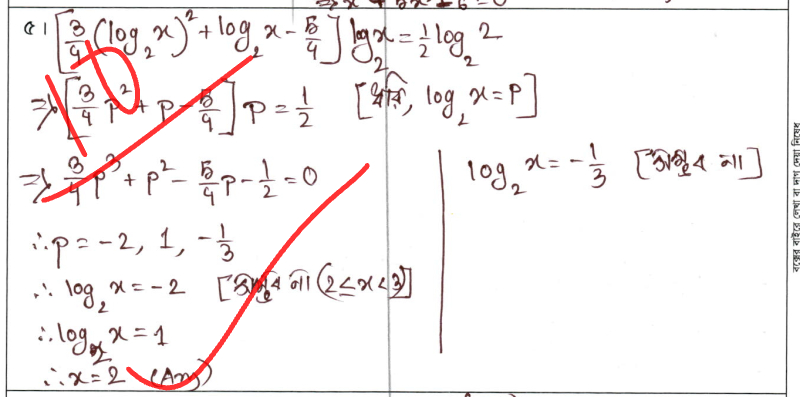 ৫। [3/4 (log₂x)² + log₂x - 5/4] log₂x = 1/2 log₂2
⇒ [3/4 p² + p - 5/4] p = 1/2 [ধরি, log₂x = p]
⇒ 3/4 p³ + p² - 5/4 p - 1/2 = 0
∴ p = -2, 1, -1/3
∴ log₂x = -2 [সম্ভব না (2≤x<3)]
∴ log₂x = 1
∴ x = 2 (Ans)
log₂x = -1/3 [সম্ভব না]
10
বক্সের বাইরে লেখা বা দাগ দেয়া নিষেধ